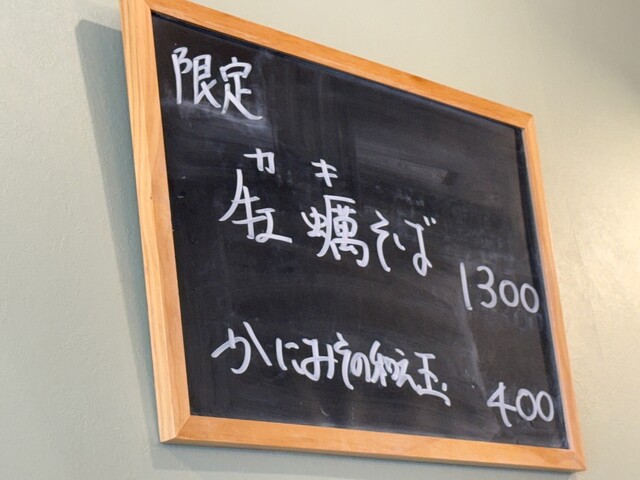 限定
カキ
牡蠣そば
1300
かにみその和え玉
400